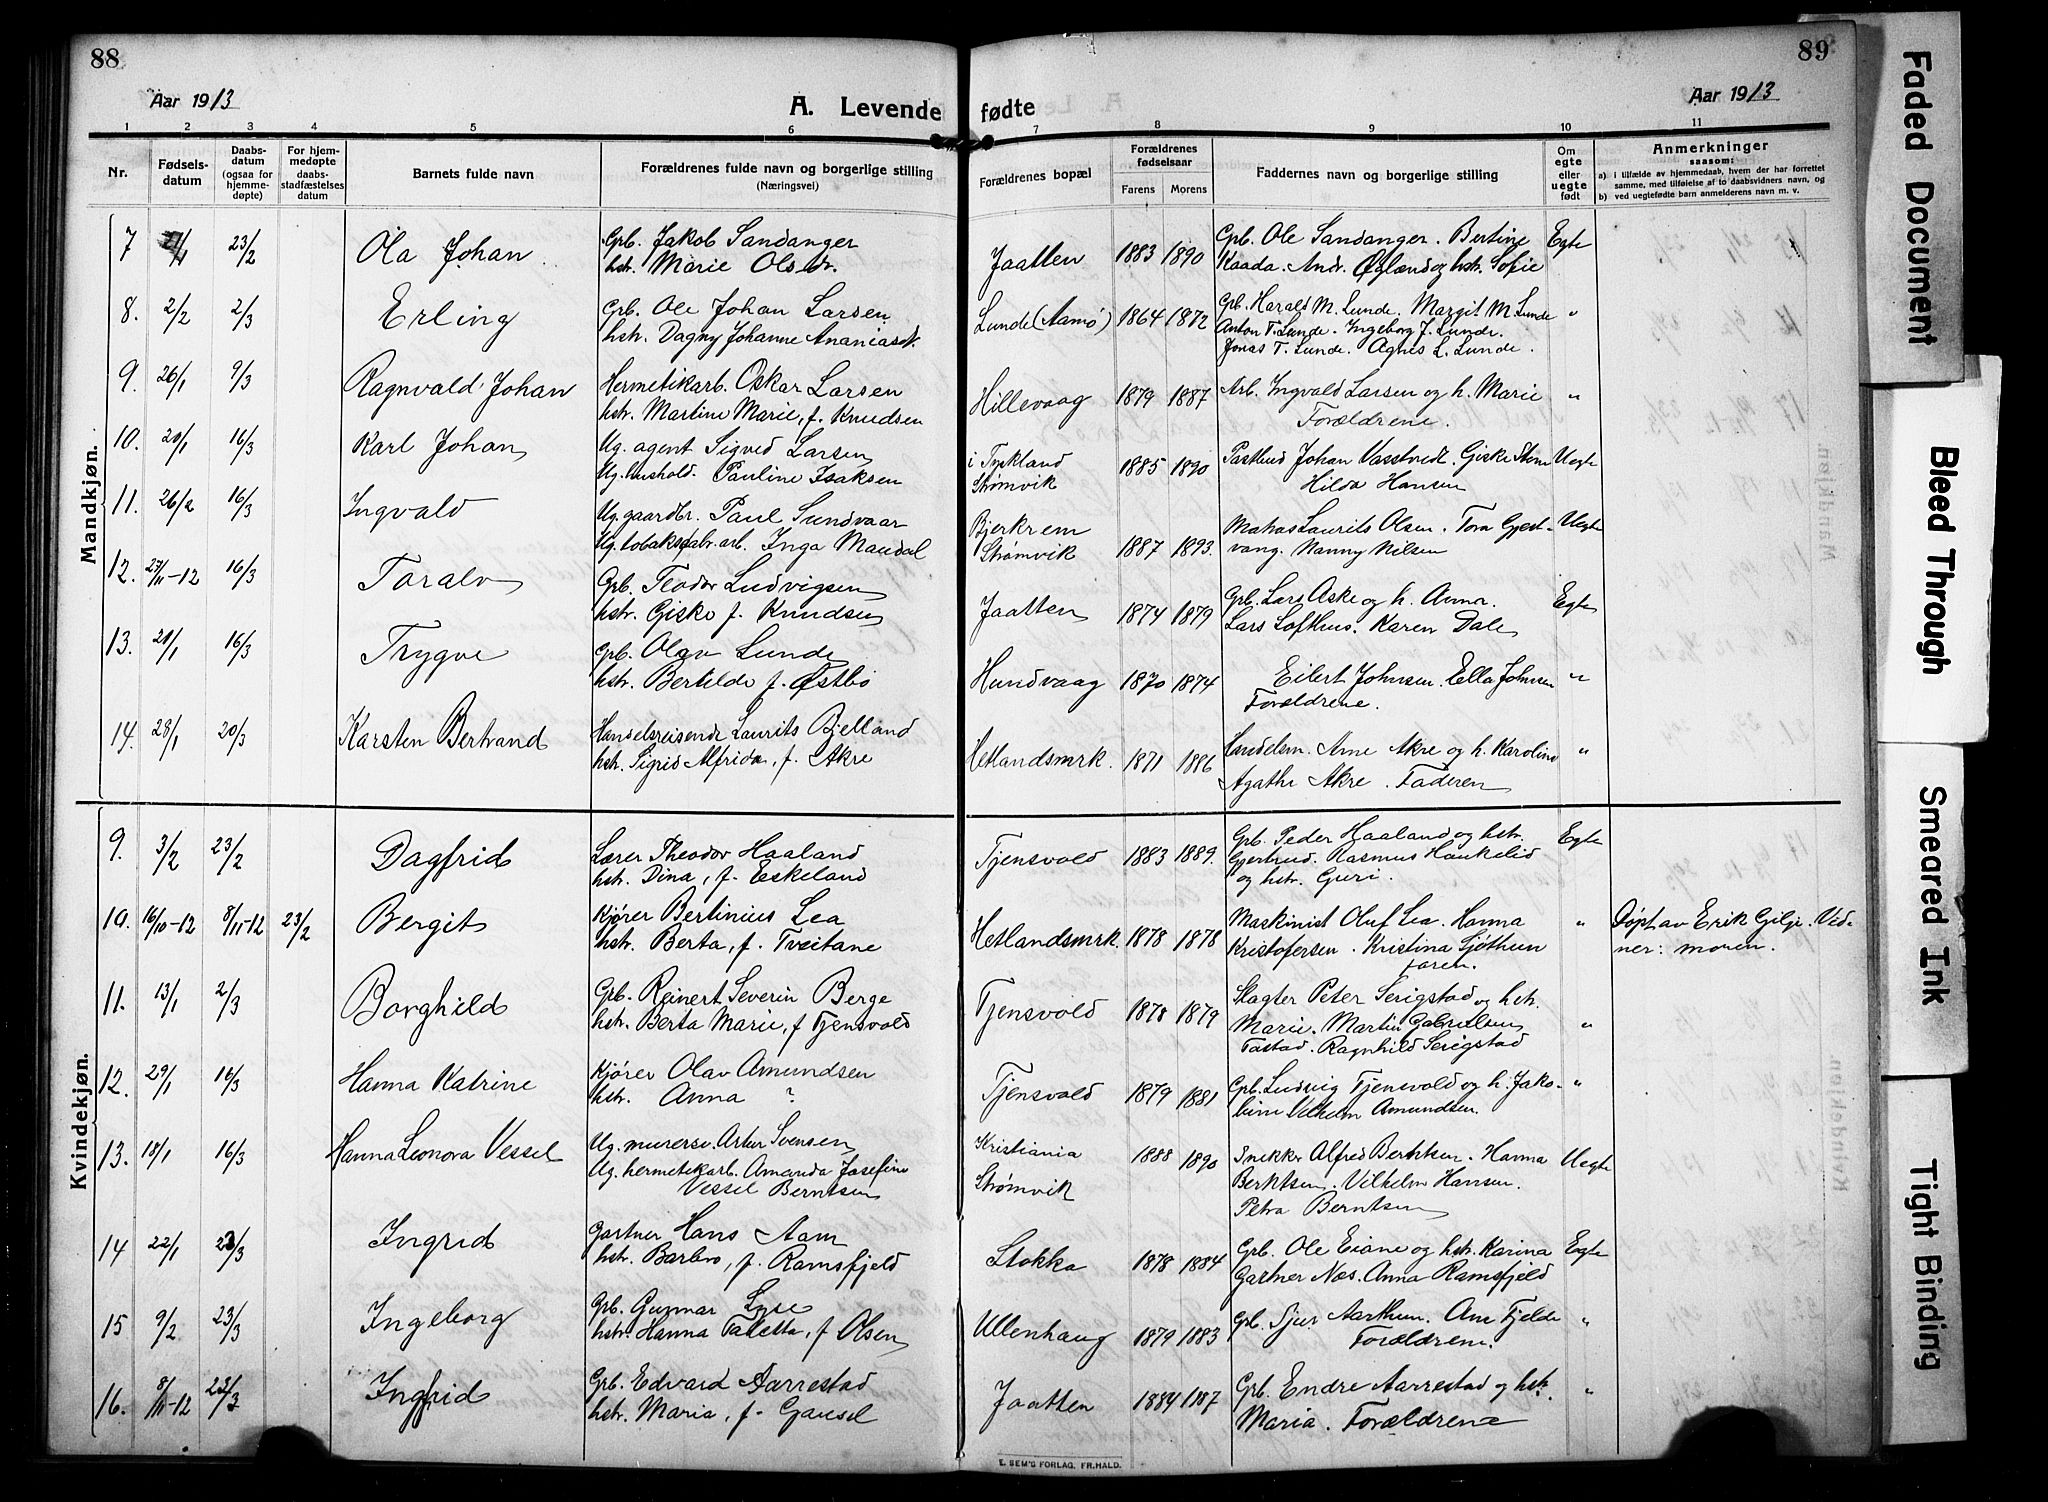 88
Aar 1913
A. Levende
1 2 3 4 5 6
Nr.
Fødsels-
datum
Daabs-
datum
(ogsaa for
hjemme-
døpte)
For hjem-
medøpte
daabs-
stadfæstelses
datum
Barnets fulde navn
Forældrenes fulde navn og borgerlige stilling
(Næringsvei)
Mandkjøn.
7 23/2 Ola Johan
Grb. Jakob Sandanger
hstr. Marie Olsdtr.
8. 2/2 2/3 Erling
Grb. Ole Johan Larsen
hstr. Dagny Johanne Ananiasdt.
9. 26/1 9/3 Ragnvald Johan
Hermetikarb. Oskar Larsen
hstr. Martine Marie, f. Knudsen
10. 20/1 16/3 Karl Johan
Ug. agent Sigved Larsen
Ug. hushold. Pauline Isaksen
11. 26/2 16/3 Ingvald
Ug. gaardbr. Paul Sundvaar
Ug. tobaksfabr.arb. Inga Maudal
12. 27/11-12 16/3 Toralv
Grb. Teodor Ludvigsen
hstr. Giske f. Knudsen
13. 21/1 16/3 Trygve
Grb. Olav Lunde
hstr. Bertilde f. Østbö
14. 28/1 20/3 Karsten Bertrand
Handelsreisende Laurits Bjelland
hstr. Sigrid Alfrida, f. Akre
Kvindekjøn.
9. 3/2 23/2 Dagfrid
Lærer Theodor Haaland
hstr. Dina, f. Eskeland
10. 16/10-12 8/11-12 23/2 Bergit
Kjører Bertinius Lea
hstr. Berta, f. Tveitane
11. 13/1 2/3 Borghild
Grb. Reinert Severin Berge
hstr. Berta Marie, f Tjensvold
12. 29/1 16/3 Hanna Katrine
Kjører Olav Amundsen
hstr. Anna ?
13. 18/1 16/3 Hanna Leonora Vessel
Ug. murersv. Artur Svensen
Ug. hermetikarb. Amanda Josefine
Vessel Berntsen
14 22/1 23/3 Ingrid
Gartner Hans Aam
hstr. Barbro, f. Ramsfjeld
15 9/2 23/3 Ingeborg
Grb. Gunnar Lyse
hstr. Hanna Taletta, f Olsen
16. 8/11-12 23/3 Ingfrid
Grb. Edvard Aarrestad
hstr. Maria, f. Gausel
89
Aar 1913
fødte
7 8 9 10 11
Forældrenes bopæl
Forældrenes
fødselsaar
Farens Morens
Faddernes navn og borgerlige stilling
Om
egte
eller
uegte
født
Anmerkninger
saasom:
a) i tilfælde av hjemmedaab, hvem der har forrettet
samme, med tilføielse af to daabsvidners navn, og
b) ved uegtefødte barn anmelderens navn m. v.
Jaatten 1883 1890
Grb. Ole Sandanger. Bertine
Kaada. Andr. Øglænd og hstr. Sofie
Egte
Lunde (Aamö) 1864 1872
Grb. Harald M. Lunde. Margit M. Lunde
Anton T. Lunde. Ingeborg J. Lunde.
Jonas T. Lunde. Agnes L. Lunde.
"
Hillevaag 1879 1887
Arb. Ingvald Larsen og h. Marie
Forældrene.
"
i Tyskland
Strømvik
1885 1890
Johan Giske
Hilda Hansen
Uegte
Bjerkrem
Strømvik
1887 1893.
Laurits Olsen. Tora Gjest-
vang. Nanny Nilsen
Uegte
Jaatten 1874 1879
Grb. Lars Aske og h. Anna.
Lars Lofthus. Karen Dale
Egte
Hundvaag 1870 1874
Eilert Johnsen. Ella Johnsen
Forældrene.
"
Hetlandsmrk. 1871 1886
Arne Akre og h. Karoline
Agathe Akre. Faderen
"
Tjensvold 1883 1889.
Grb. Peder Haaland og hstr.
Gjertrud. Rasmus Haukelid
og hstr. Guri.
Egte
Hetlandsmrk. 1878 1878
Maskinist Oluf Lea. Hanna
Kristofersen. Kristina Sjøthun
faren.
"
Døpt av Erik Gilje. Vid-
ner: moren.
Tjensvold 1878 1879
Slagter Peter Serigstad og hstr.
Marie. Martin Gabrielsen
Tastad. Ragnhild Serigstad
"
Tjensvold 1879 1881
Grb. Ludvig Tjensvold og h. Jako-
bine Vilhelm Amundsen.
"
Kristiania
Strømvik
1888 1890
Snekker Alfred Berntsen. Hanna
Berntsen. Vilhelm Hansen.
Petra Berntsen
Uegte
Stokka 1878 1884
Grb. Ole Eiane og hstr. Karina
Gartner Næs. Anna Ramsfjeld
Egte
Ullenhaug 1879 1883
Grb. Sjur Aarthun. Ane Fjelde
Forældrene.
"
Jaatten 1884 1887
Grb. Endre Aarrestad og hstr.
Maria. Forældrene
"
E. SEM'S FORLAG, FR.HALD.
Faded Document
Bleed Through
Smeared Ink
Tight Binding